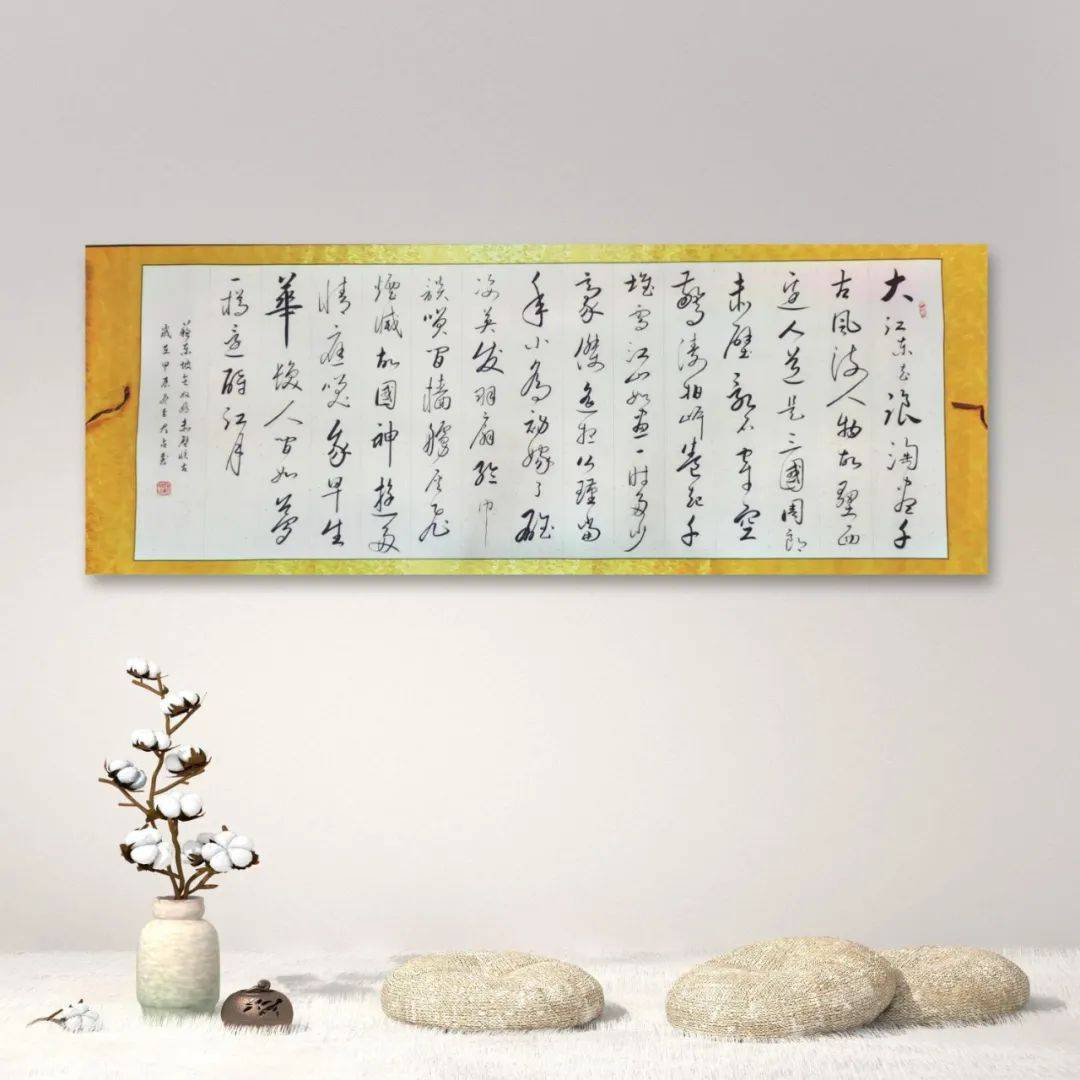 大江东去浪淘尽千
古风流人物故垒西
边人道是三國周郎
赤壁乱石穿空
驚涛拍岸卷起千
堆雪江山如画一时多少
豪傑遥想公瑾当
年小乔初嫁了雄
姿英发羽扇纶巾
談笑间樯艣灰飞
煙滅故國神遊多
情应笑我早生
華髮人间如梦
一樽还酹江月
蘇东坡念奴娇赤壁怀古
歲在甲辰